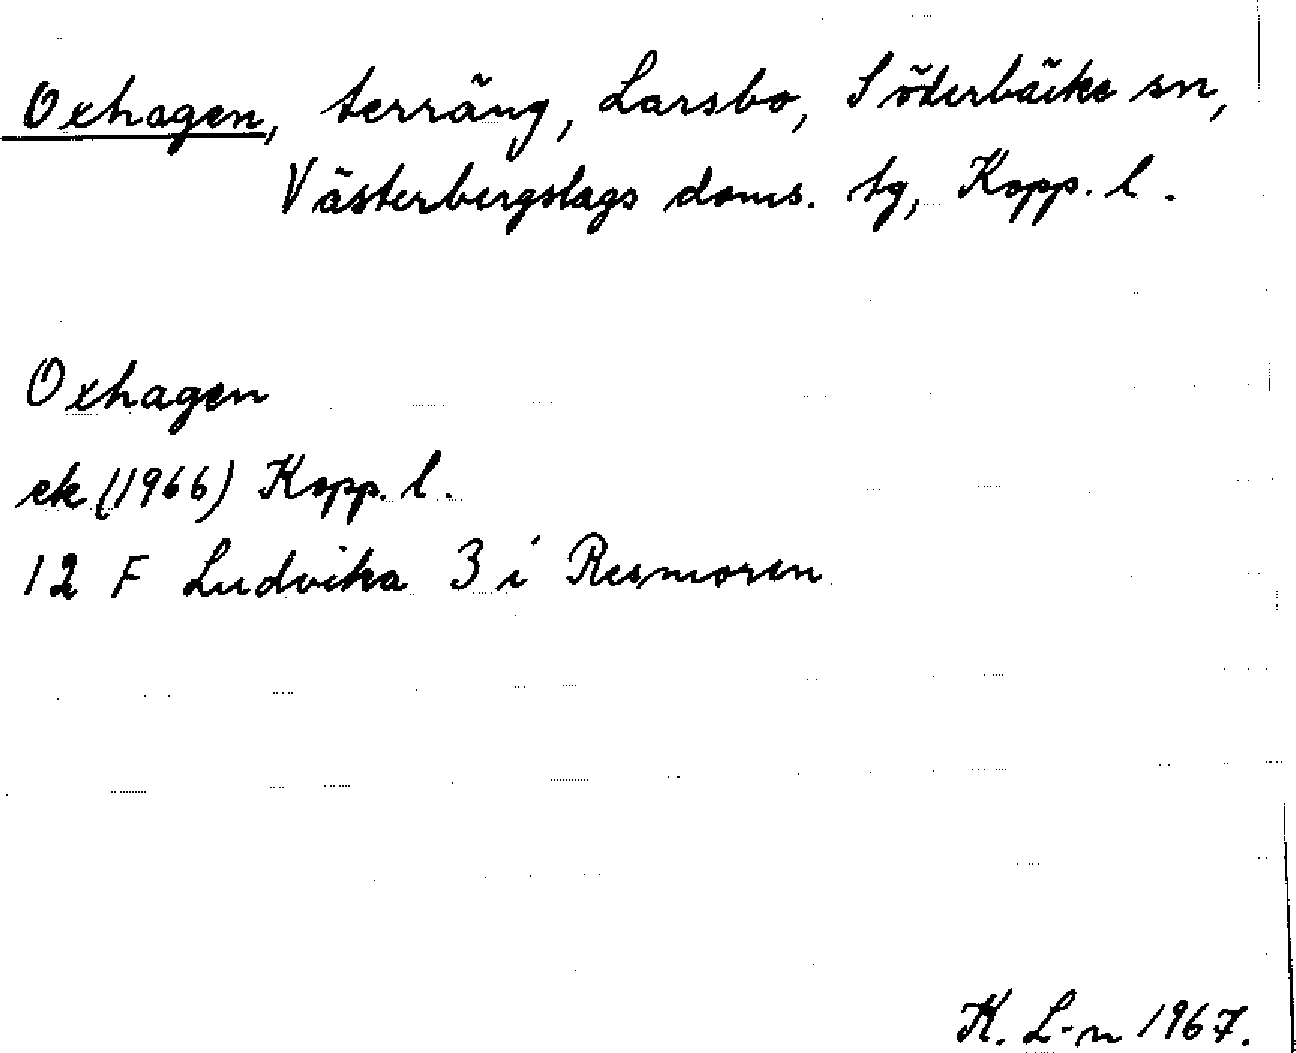 Oxhagen, terräng, Larsbo, Söderbärke sn,
Västerbergslags doms. tg, Kopp. l.
Oxhagen
ek (1966) Kopp. l.
12 F Ludvika 3 i Resmoren
K. L-n 1967.